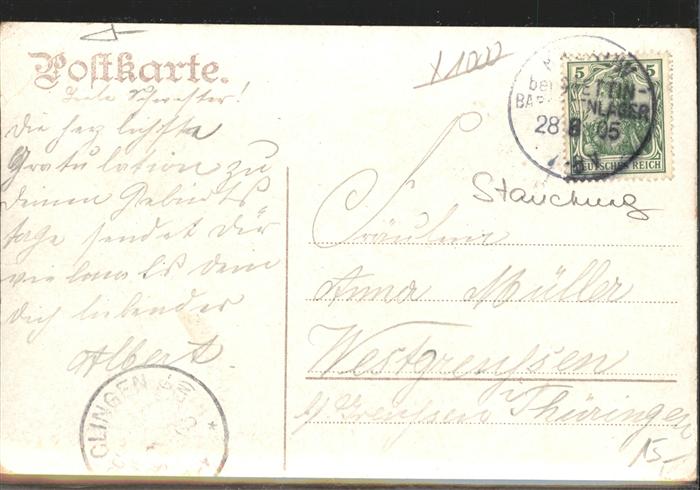 Postkarte.
Liebe Schwester!
Die herzlichste
Gratulation zu
deinem Gebirts
tage sendet dir
vielmals dein
dich liebender
Albert.
x1000
bei STETTIN-
BARACKENLAGER
28 8 05
5 5
DEUTSCHES REICH
Stauchung
Fräulein
Anna Müller
Westgreußen
b/Greussen i/Thüringen
CLINGEN
15.-